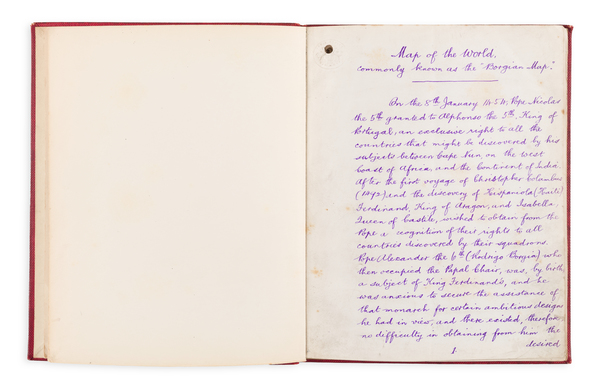 Map of the World,
commonly known as the "Borgian Map."
On the 8th January 1454, Pope Nicolas
the 5th granted to Alphonso the 5th, King of
Portugal, an exclusive right to all the
countries that might be discovered by his
subjects between Cape Nun, on the west
Coast of Africa, and the Continent of India.
After the first voyage of Christopher Columbus
(1492) and the discovery of Hispaniola (Haiti)
Ferdinand, King of Aragon, and Isabella,
Queen of Castile, wished to obtain from the
Pope recognition of their rights to all
countries discovered by their squadrons.
Pope Alexander the 6th (Rodrigo Borgia) who
then occupied the Papal Chair, was, by birth,
a subject of King Ferdinand's, and he
was anxious to secure the assistance of
that monarch for certain ambitious designs
he had in view, and there existed, therefore
no difficulty in obtaining from him the
desired
1